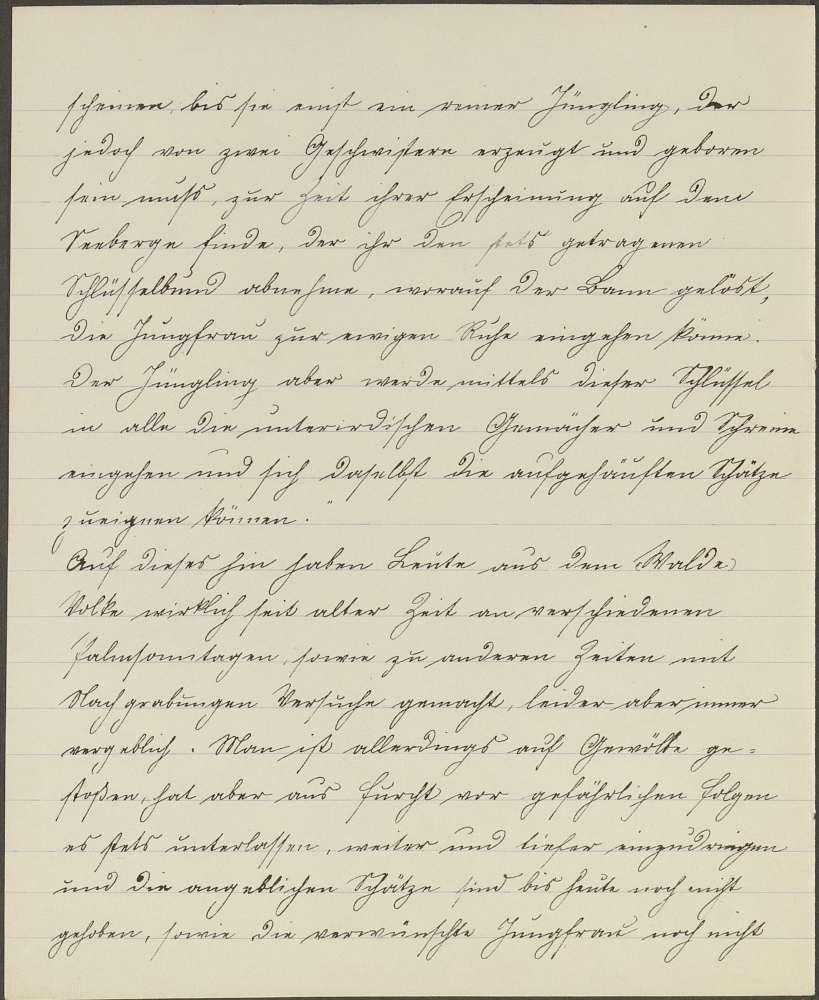 scheinen, bis sie einst ein reiner Jüngling, der
jedoch von zwei Geschwistern erzeugt und geboren
sein muß, zur Zeit ihrer Erscheinung auf dem
Seeberge finde, der ihr den stets getragenen
Schlüsselbund abnehme, worauf der Bann gelöst,
die Jungfrau zur ewigen Ruhe eingehen könne.
Der Jüngling aber werde mittels dieser Schlüssel
in alle die unterirdischen Gemächer und Schreine
eingehen und sich daselbst die aufgehäuften Schätze
zueignen können."
Auf dieses hin haben Leute aus dem Walde
Volke wirklich seit alter Zeit an verschiedenen
Palmsonntagen, sowie zu anderen Zeiten mit
Nachgrabungen Versuche gemacht, leider aber immer
vergeblich. Man ist allerdings auf Gewölbe ge=
stoßen, hat aber aus Furcht vor gefährlichen Folgen
es stets unterlassen, weiter und tiefer einzudringen
und die angeblichen Schätze sind bis heute noch nicht
gehoben, sowie die verwünschte Jungfrau noch nicht